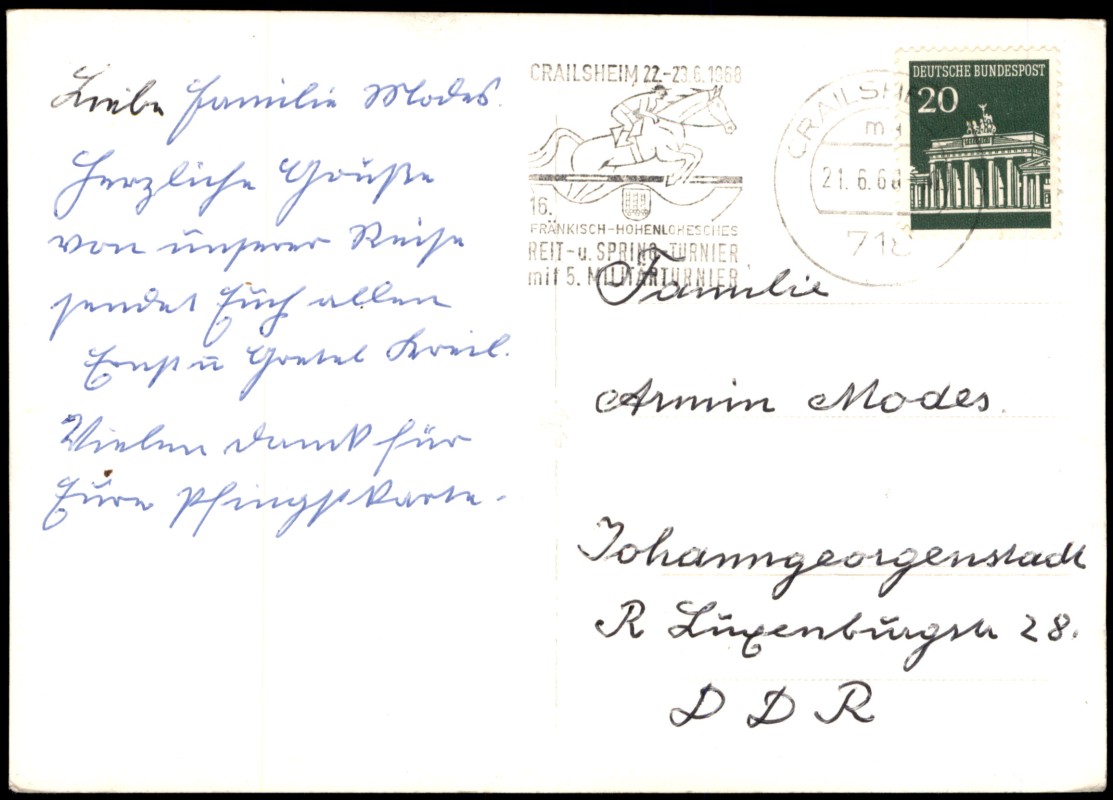 Liebe Familie Modes.
Herzliche Grüße
von unserer Reise
sendet Euch allen
Ernst u Gretel Kreil.
Vielen Dank für
Eure Pfingstkarte.
CRAILSHEIM 22.-23.6.1968
16.
FRÄNKISCH-HOHENLOHESCHES
REIT-u. SPRING-TURNIER
mit 5. MILITÄRTURNIER
CRAILSHE
m
21.6.68
718
DEUTSCHE BUNDESPOST
20
Familie
Armin Modes.
Johanngeorgenstadt
R Luxenburgstr 28.
DDR